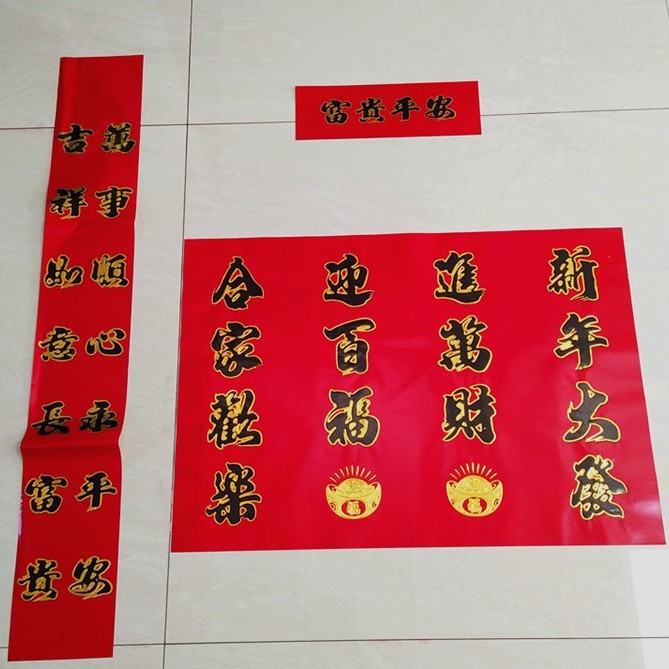 富貴平安
萬事順心永平安
吉祥如意長富貴
新年大發
進萬財
福
迎百福
福
合家歡樂